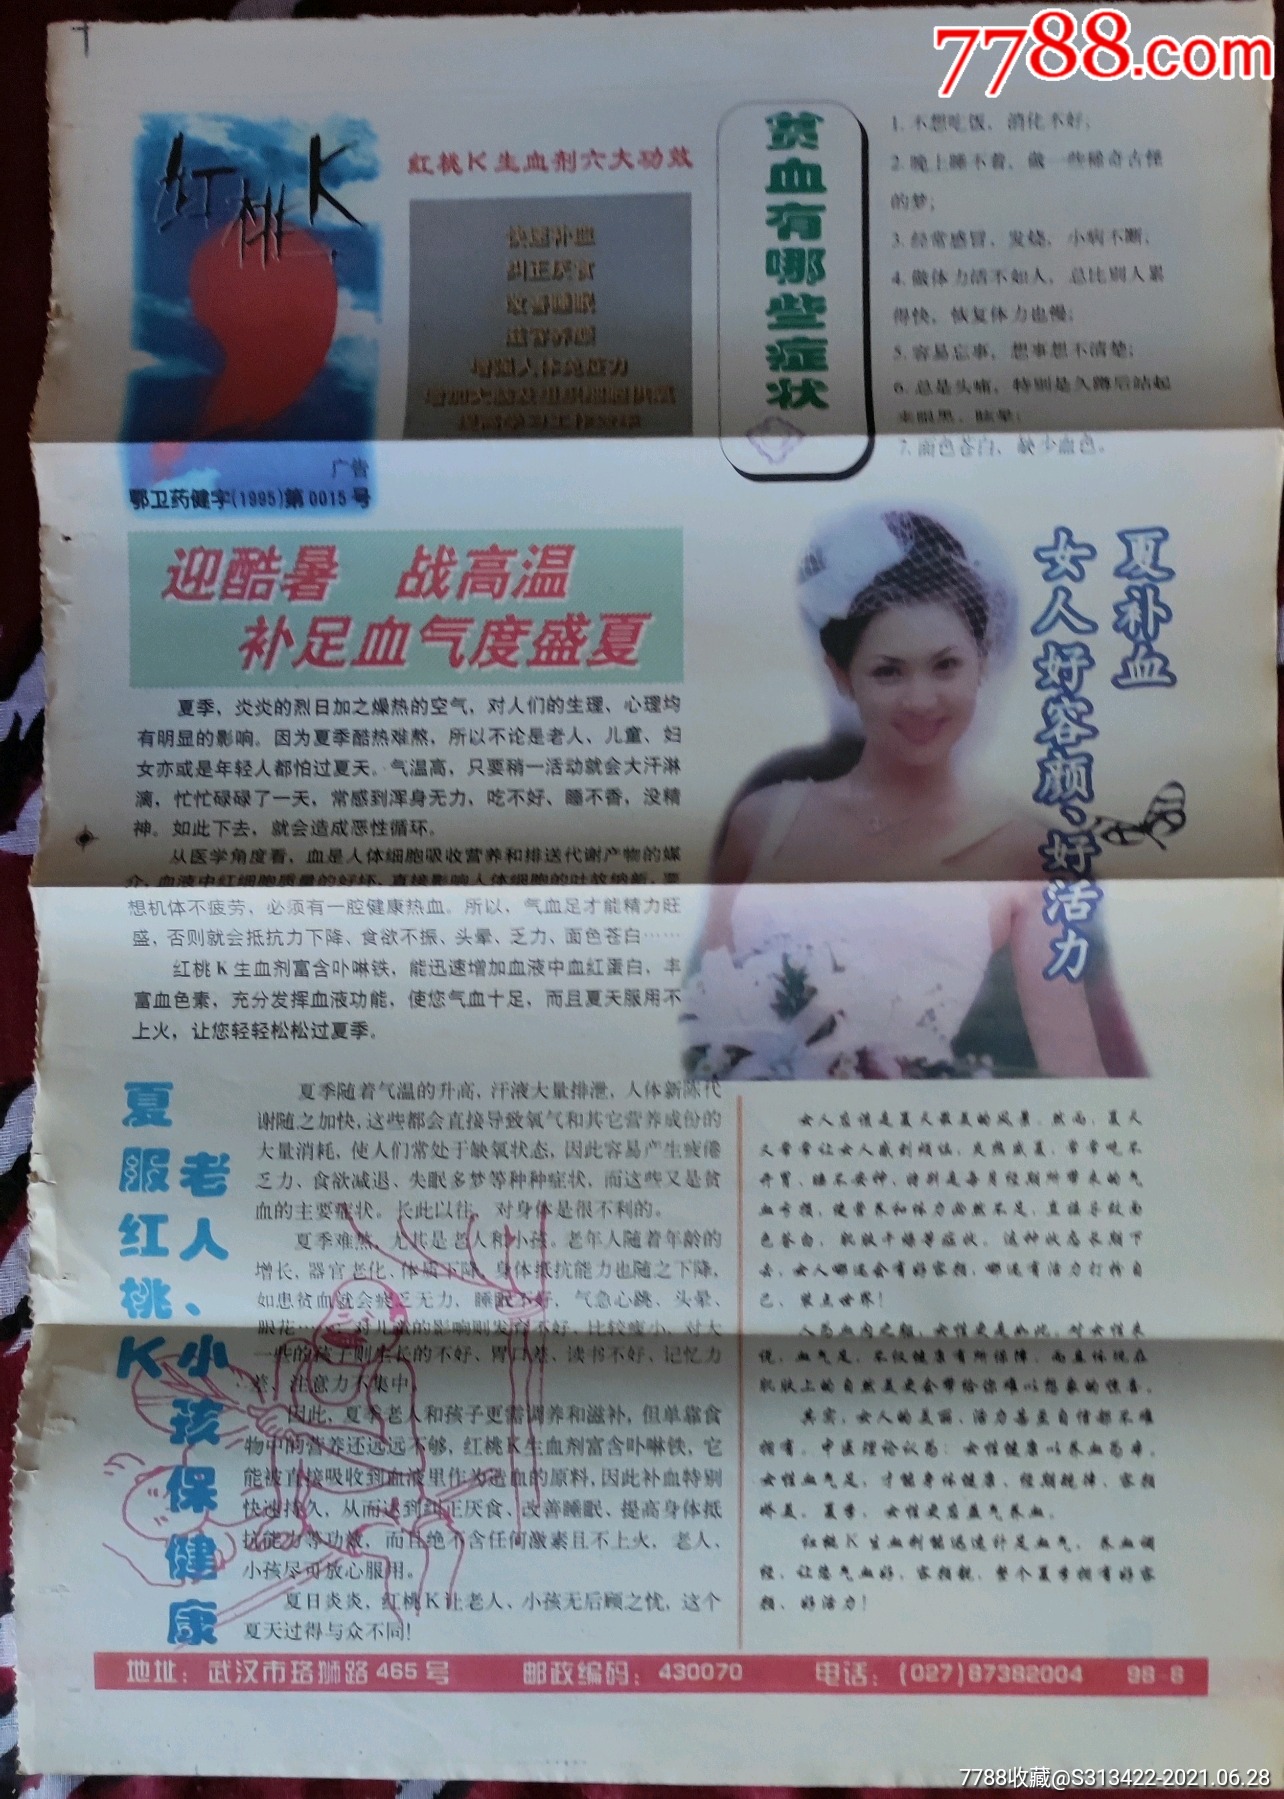 7788.com
红桃K
广告
鄂卫药健字(1995)第0015号
红桃K生血剂六大功效
快速补血
纠正厌食
改善睡眠
滋容养颜
增强人体免疫力
贫血有哪些症状
1. 不想吃饭，消化不好；
2. 晚上睡不着，做一些稀奇古怪
的梦；
3. 经常感冒、发烧，小病不断，
4. 做体力活不如人，总比别人累
得快，恢复体力也慢；
5. 容易忘事，想事想不清楚；
6. 总是头痛，特别是久蹲后站起
来眼黑、眩晕；
7. 面色苍白，缺少血色。
迎酷暑 战高温
补足血气度盛夏
夏季，炎炎的烈日加之燥热的空气，对人们的生理、心理均
有明显的影响。因为夏季酷热难熬，所以不论是老人、儿童、妇
女亦或是年轻人都怕过夏天。气温高，只要稍一活动就会大汗淋
漓，忙忙碌碌了一天，常感到浑身无力，吃不好、睡不香，没精
神。如此下去，就会造成恶性循环。
从医学角度看，血是人体细胞吸收营养和排送代谢产物的媒
介，血液中红细胞质量的好坏，直接影响人体细胞的吐故纳新，要
想机体不疲劳，必须有一腔健康热血。所以，气血足才能精力旺
盛，否则就会抵抗力下降、食欲不振、头晕、乏力、面色苍白……
红桃K生血剂富含卟啉铁，能迅速增加血液中血红蛋白，丰
富血色素，充分发挥血液功能，使您气血十足，而且夏天服用不
上火，让您轻轻松松过夏季。
夏补血
女人好容颜、好活力
夏服红桃K
老人、小孩保健康
夏季随着气温的升高，汗液大量排泄，人体新陈代
谢随之加快，这些都会直接导致氧气和其它营养成份的
大量消耗，使人们常处于缺氧状态，因此容易产生疲倦
乏力、食欲减退、失眠多梦等种种症状，而这些又是贫
血的主要症状。长此以往，对身体是很不利的。
夏季难熬，尤其是老人和小孩。老年人随着年龄的
增长，器官老化、体质下降，身体抵抗能力也随之下降，
如患贫血就会疲乏无力，睡眠不好，气急心跳、头晕、
眼花……对儿童的影响则发育不好、比较瘦小，对大
一些的孩子则生长的不好、胃口差、读书不好、记忆力
差、注意力不集中。
因此，夏季老人和孩子更需调养和滋补，但单靠食
物中的营养还远远不够，红桃K生血剂富含卟啉铁，它
能被直接吸收到血液里作为造血的原料，因此补血特别
快速持久，从而达到纠正厌食、改善睡眠、提高身体抵
抗能力等功效，而且绝不含任何激素且不上火，老人、
小孩尽可放心服用。
夏日炎炎，红桃K让老人、小孩无后顾之忧，这个
夏天过得与众不同！
女人应该是夏天最美的风景。然而，夏天
又常常让女人感到烦恼。炎热盛夏，常常吃不
开胃，睡不安神，特别是每月经期所带来的气
血亏损，使营养和体力必然不足，直接导致面
色苍白，肌肤干燥等症状。这种状态长期下
去，女人哪还会有好容颜，哪还有活力打扮自
己，装点世界！
人为血肉之躯，女性更是如此。对女性来
说，血气足，不仅健康有所保障，而且体现在
肌肤上的自然美更会带给你难以想象的惊喜。
其实，女人的美丽、活力甚至自信都不难
拥有。中医理论认为：女性健康以养血为本。
女性血气足，才能身体健康、经期规律、容颜
娇美。夏季，女性更应益气养血。
红桃K生血剂能迅速补足血气，养血调
经，让您气血好，容颜靓，整个夏季拥有好容
颜、好活力！
地址：武汉市珞狮路465号 邮政编码：430070 电话：(027)87382004 98-8
7788收藏@S313422-2021.06.28